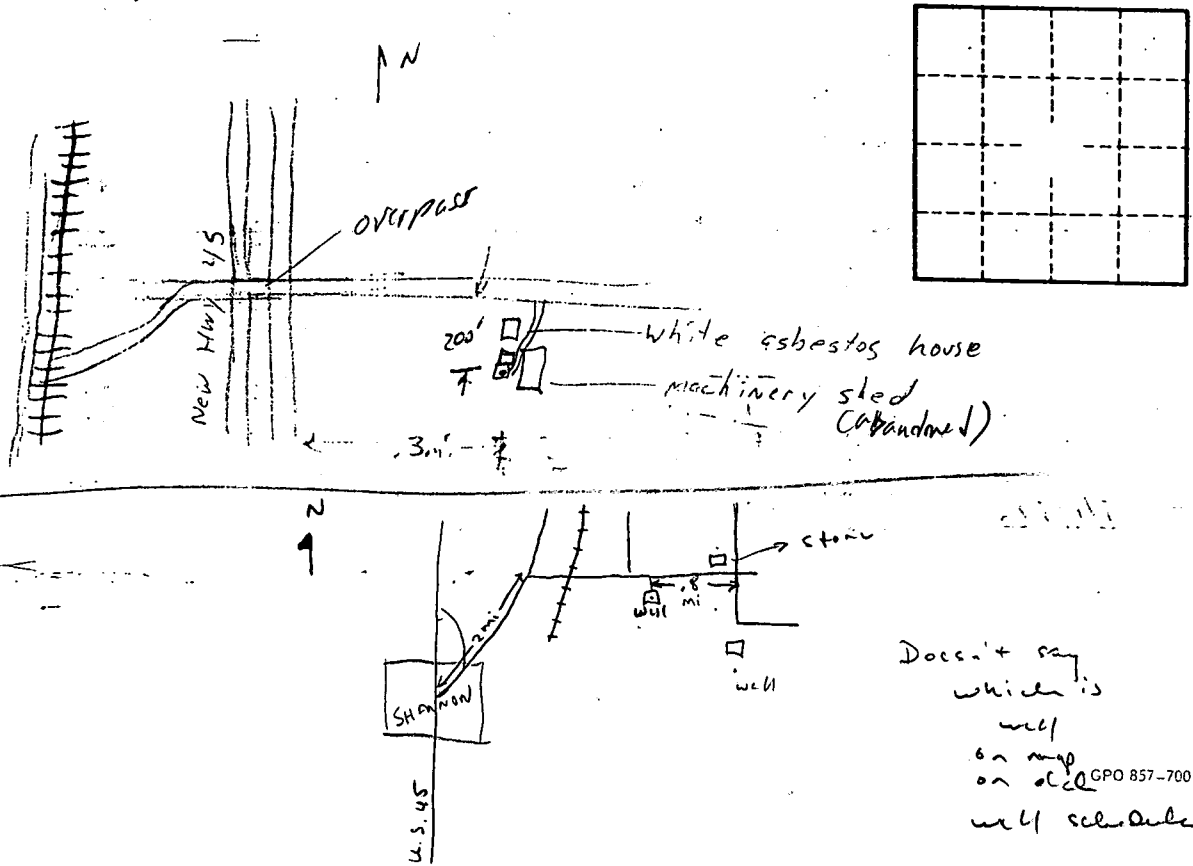 N
overpass
New Hwy 45
200'
white asbestos house
machinery shed
(abandoned)
.3mi
N
store
.8
mi
well
2mi
SHANNON
well
U.S. 45
Doesn't say
which is
well
on map
on old
GPO 857-700
well schedule